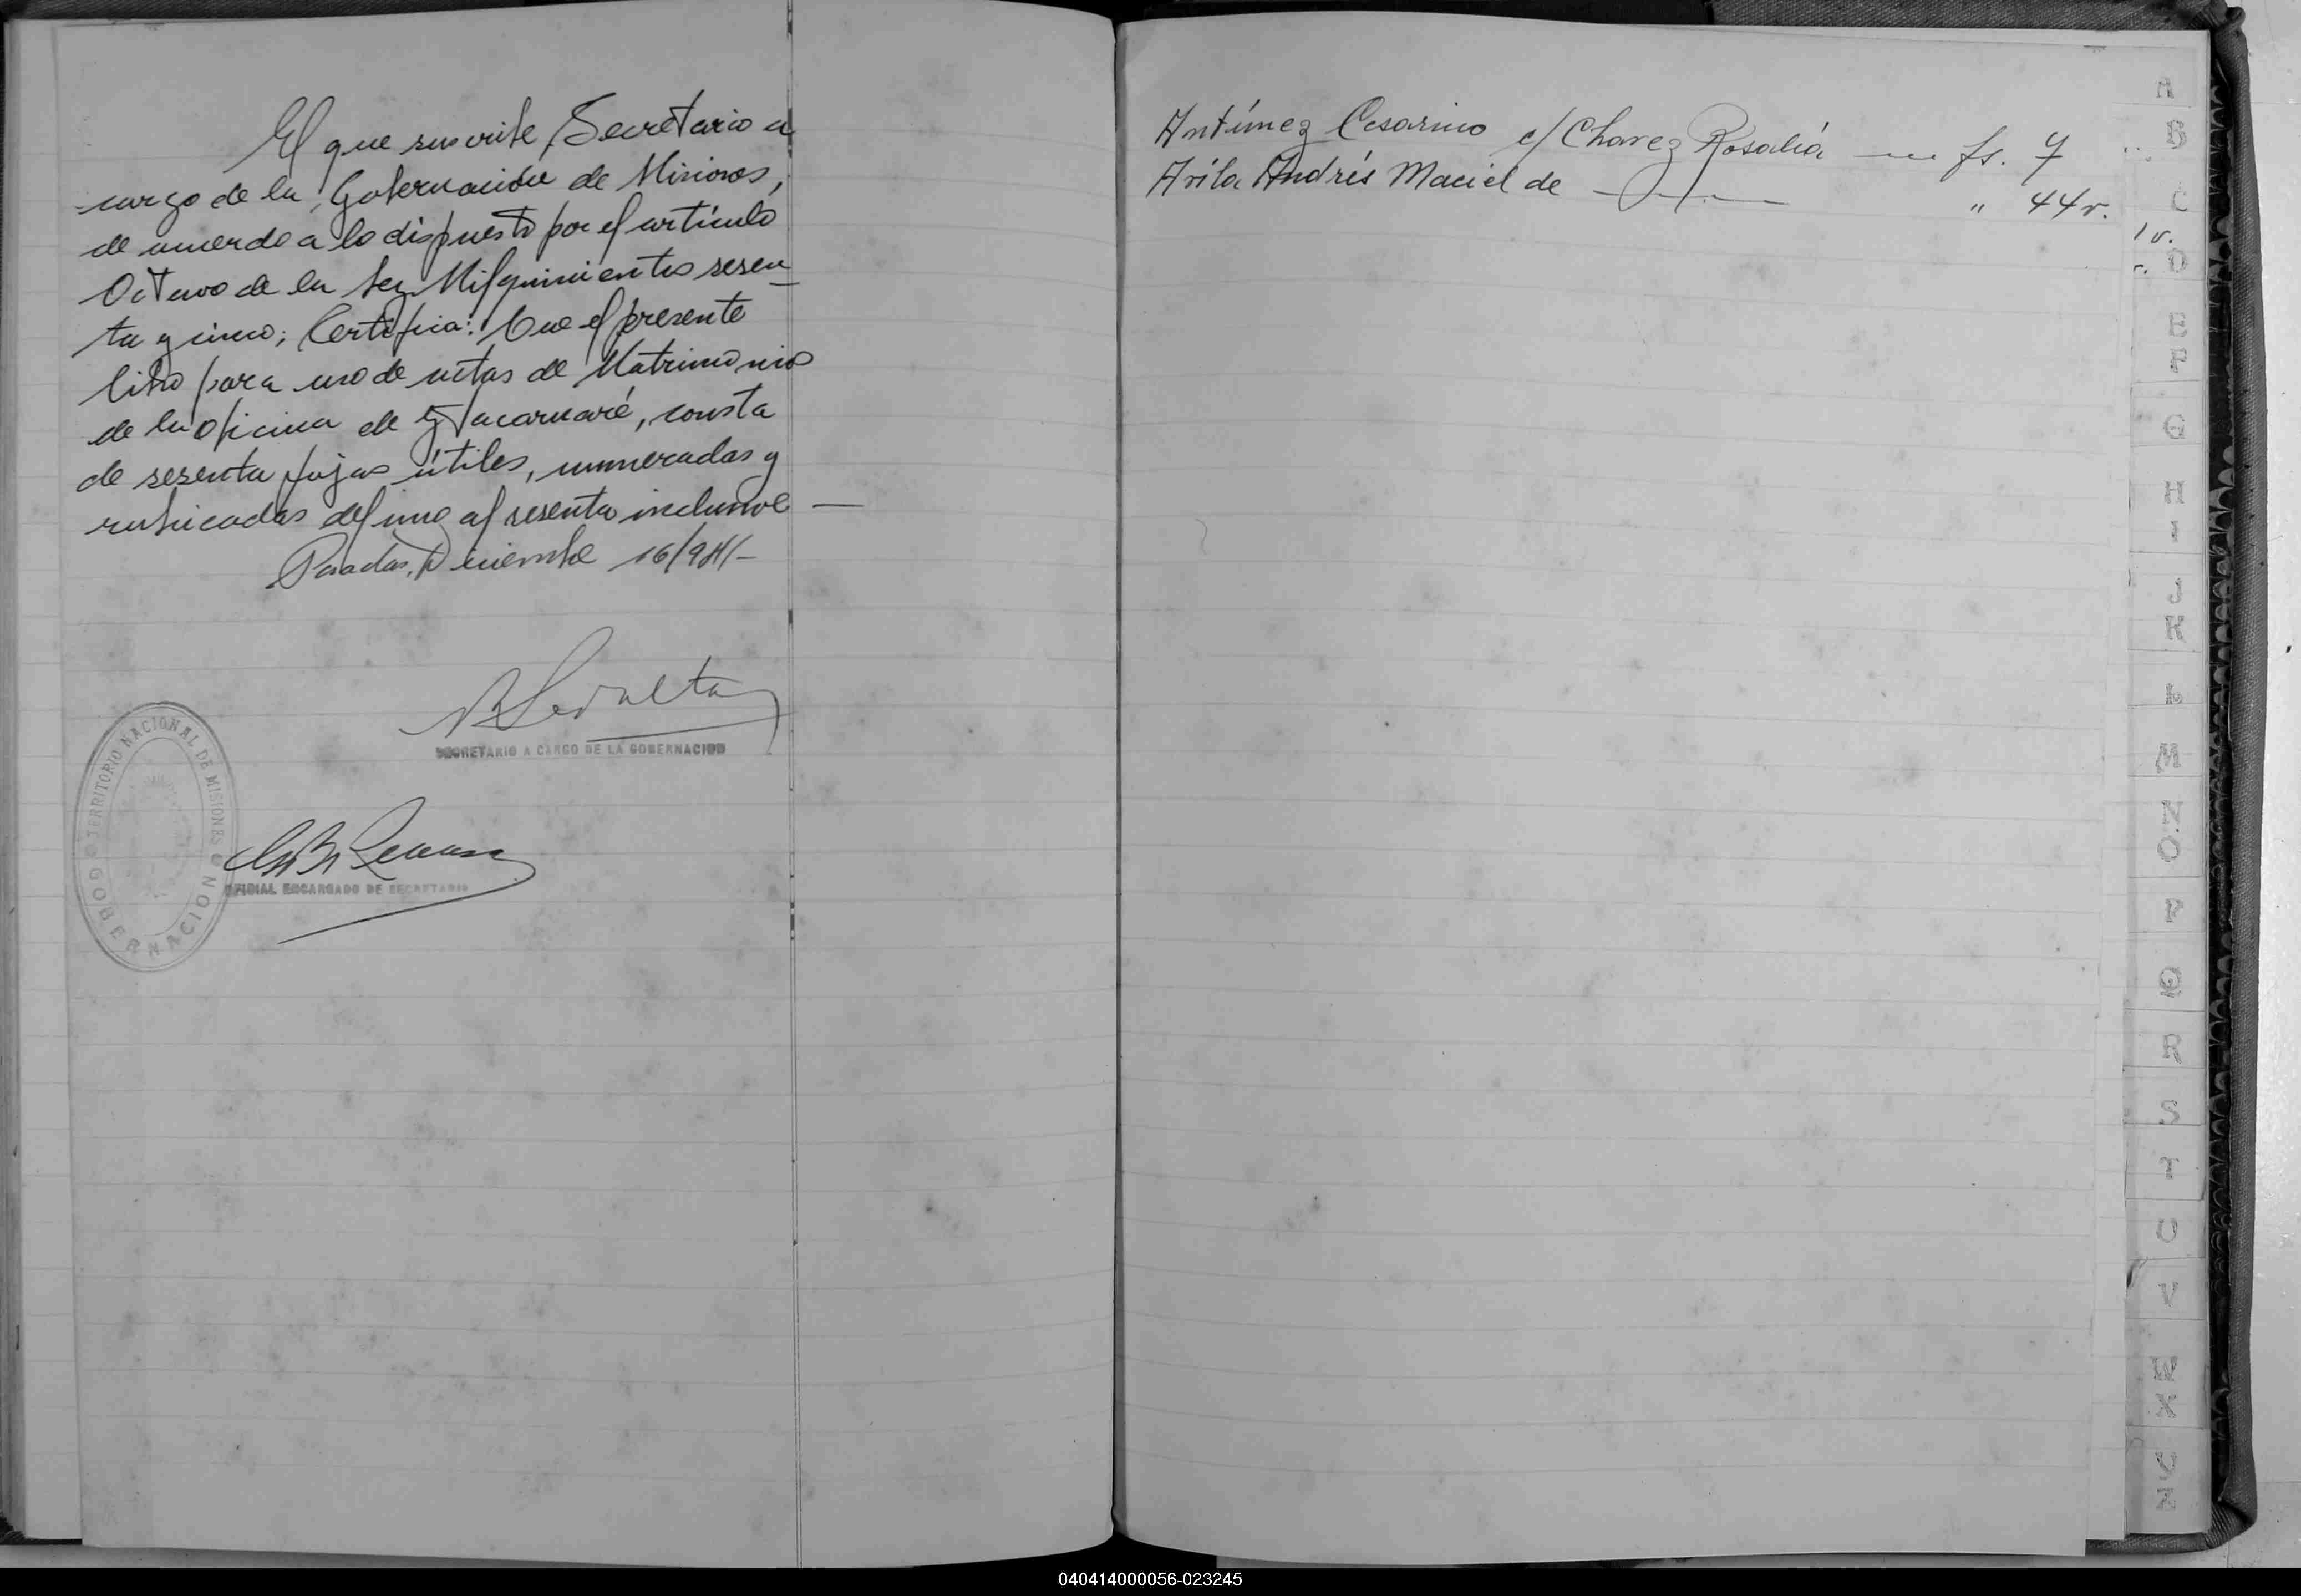 El que suscribe, Secretario a
cargo de la Gobernación de Misiones,
de acuerdo a lo dispuesto por el artículo
Octavo de la Ley Mil quinientos sesen
ta y cinco; Certifica: Que el presente
libro para uso de actas de Matrimonios
de la Oficina de Itacaruaré, consta
de sesenta fojas útiles, numeradas y
rubricadas del uno al sesenta inclusive —
Posadas, Diciembre 16/941-
SECRETARIO A CARGO DE LA GOBERNACION
TERRITORIO NACIONAL DE MISIONES
GOBERNACION
OFICIAL ENCARGADO DE SECRETARIA
Antúnez Cesarino c/ Chavez Rosalía — fs. 7
Avila Andrés Maciel de — " 44v.
1 v.
A
B
C
D
E
F
G
H
I
J
K
L
M
N
O
P
Q
R
S
T
U
V
W
X
Y
Z
040414000056-023245